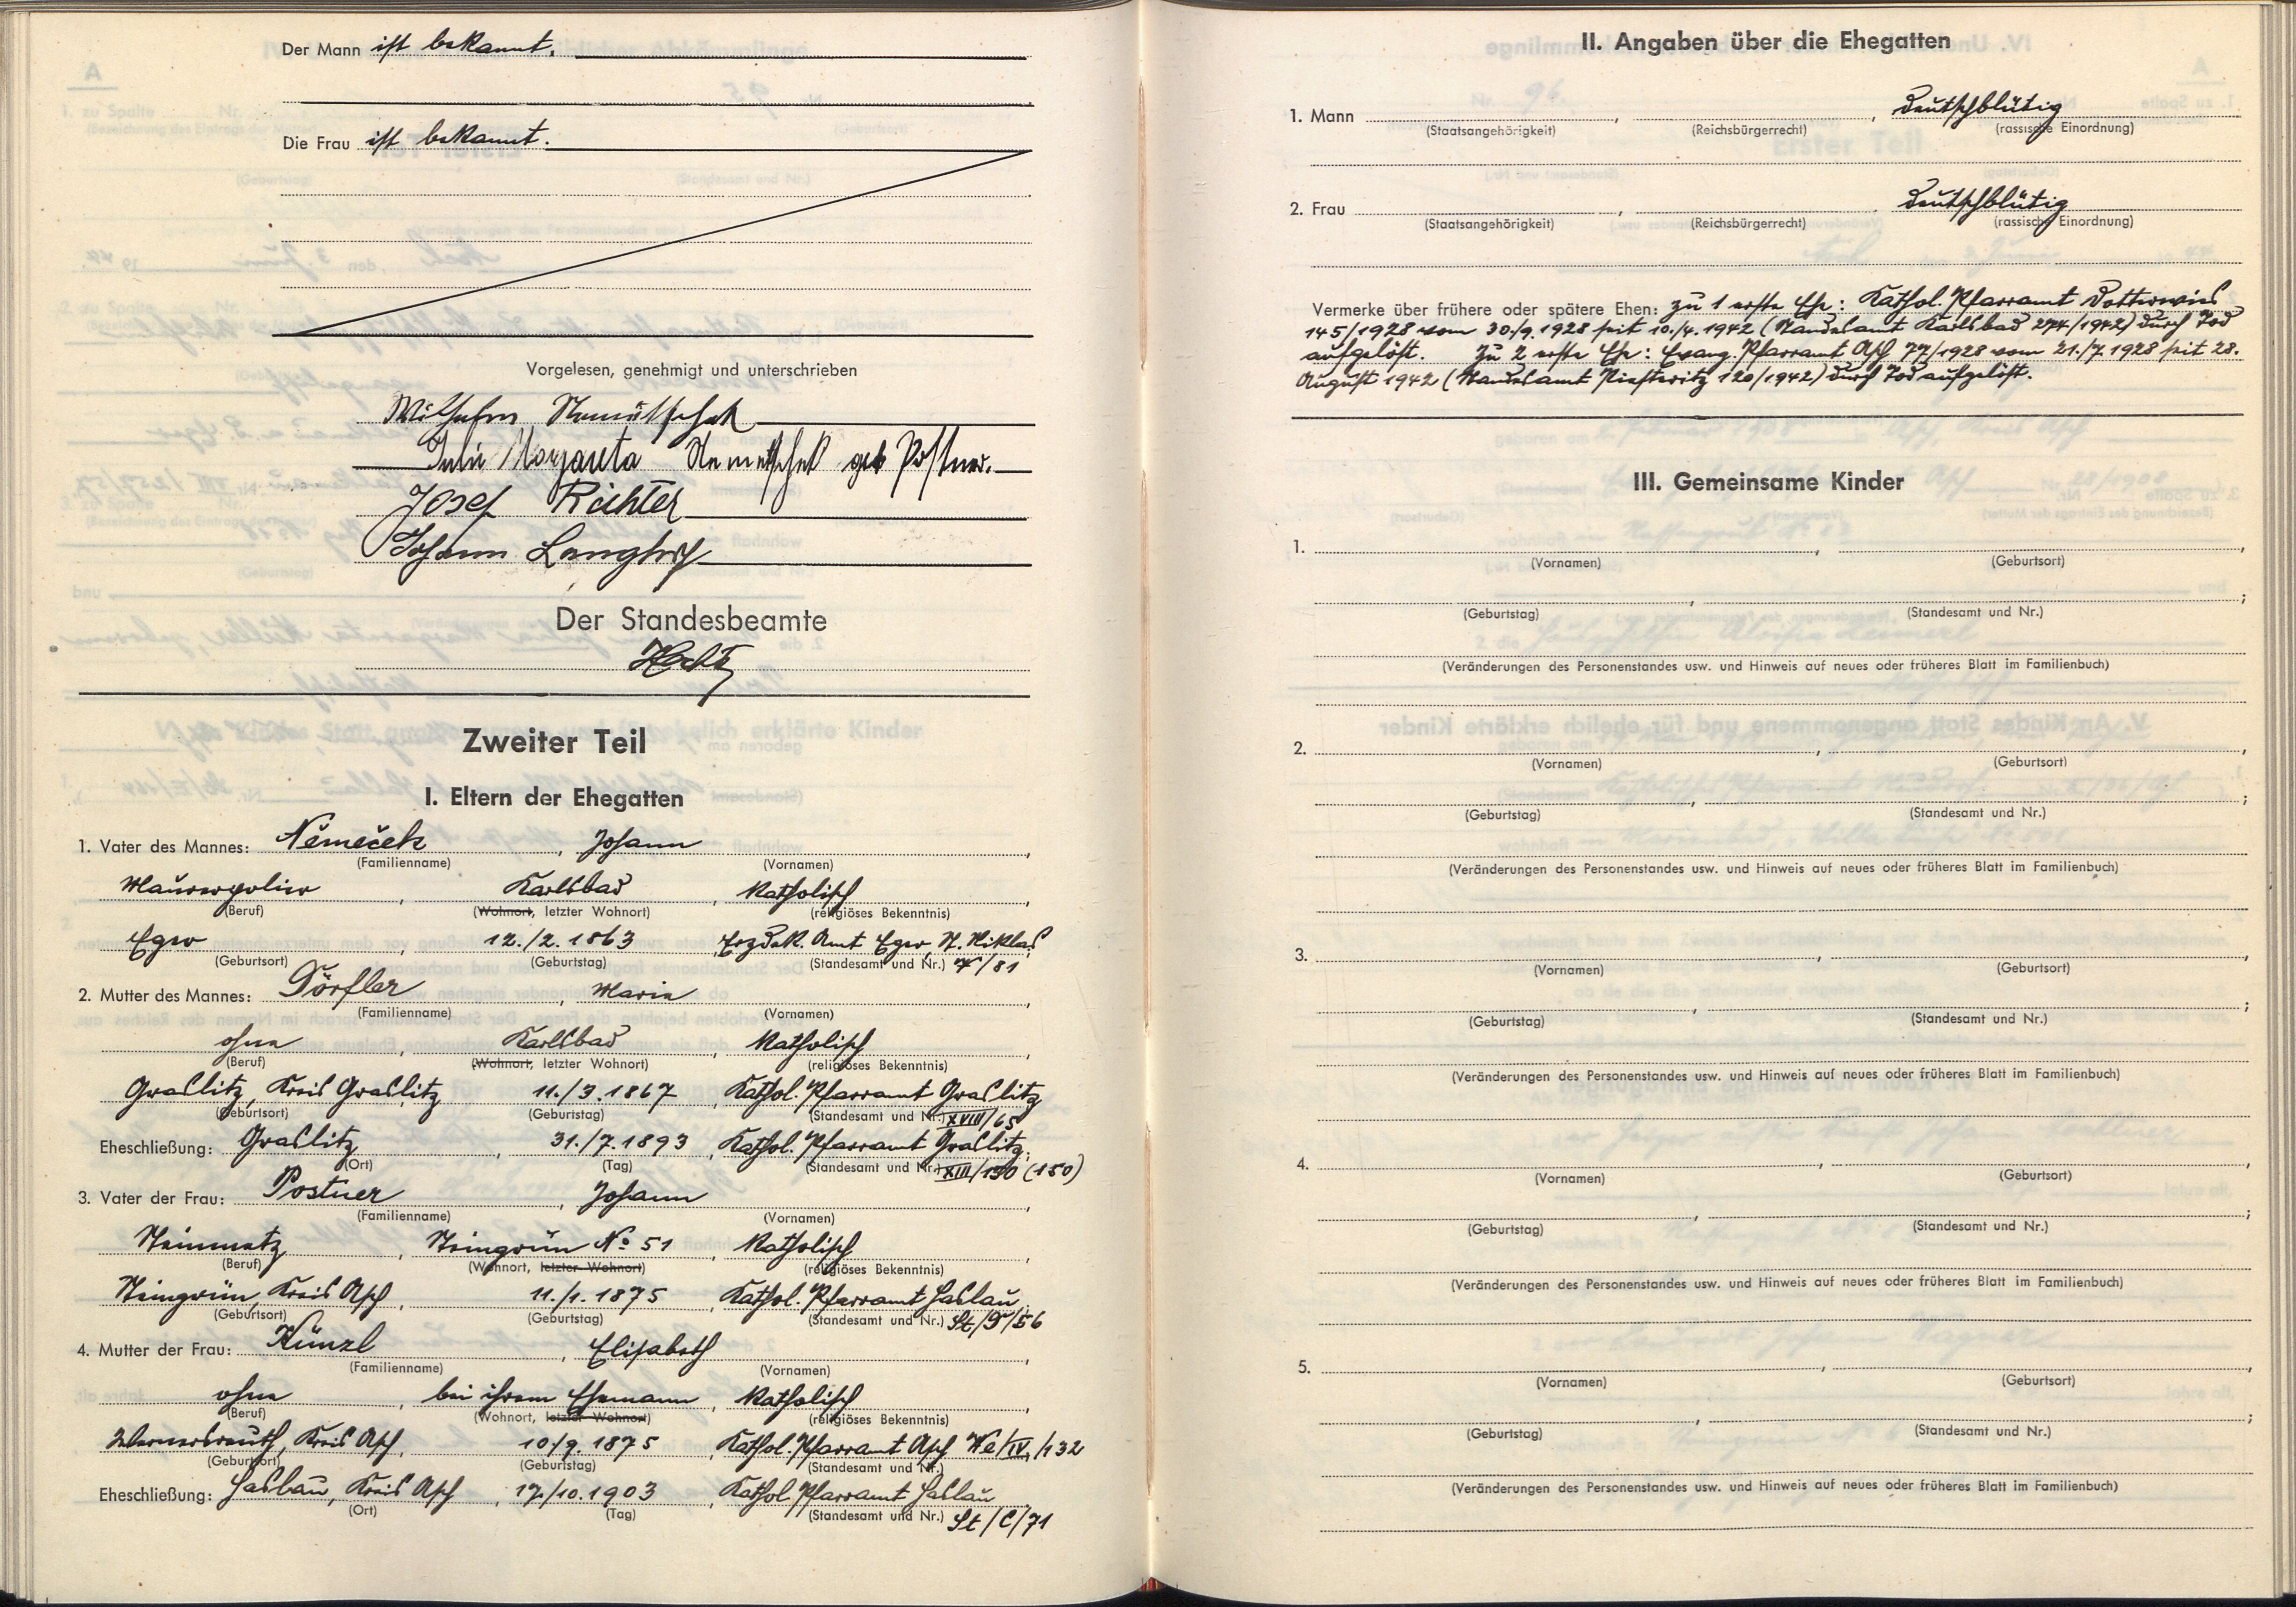 Der Mann ist bekannt.
Die Frau ist bekannt.
Vorgelesen, genehmigt und unterschrieben
Wilhelm Nemetschek
Julie Margareta Nemetschek geb Postner.
Josef Richter
Johann
Der Standesbeamte
Zweiter Teil
I. Eltern der Ehegatten
1. Vater des Mannes: Němeček, Johann,
(Familienname) (Vornamen)
Maurerpolier, Karlsbad, katholisch,
(Beruf) (Wohnort, letzter Wohnort) (religiöses Bekenntnis)
Eger 12./2.1863 Erzdek. Amt Eger, St. Niklas
(Geburtsort) (Geburtstag) (Standesamt und Nr.) /81
2. Mutter des Mannes: Dörfler, Maria,
(Familienname) (Vornamen)
ohne, Karlsbad, katholisch,
(Beruf) (Wohnort, letzter Wohnort) (religiöses Bekenntnis)
Graslitz, Kreis Graslitz 11./3.1867, Kathol. Pfarramt Graslitz
(Geburtsort) (Geburtstag) (Standesamt und Nr.) XVIII/65
Eheschließung: Graslitz, 31./7.1893, Kathol. Pfarramt Graslitz,
(Ort) (Tag) (Standesamt und Nr.) XIII/130 (150)
3. Vater der Frau: Postner, Johann,
(Familienname) (Vornamen)
Steinmetz, Steingrün No 51, katholisch,
(Beruf) (Wohnort, letzter Wohnort) (religiöses Bekenntnis)
Steingrün, Kreis Asch, 11./1.1875, Kathol. Pfarramt Haslau
(Geburtsort) (Geburtstag) (Standesamt und Nr.) St/D/56
4. Mutter der Frau: Künzl, Elisabeth,
(Familienname) (Vornamen)
ohne, bei ihrem Ehemann, katholisch,
(Beruf) (Wohnort, letzter Wohnort) (religiöses Bekenntnis)
Wernersreuth, Kreis Asch, 10/9.1875, Kathol. Pfarramt Asch We/IV/132
(Geburtsort) (Geburtstag) (Standesamt und Nr.)
Eheschließung: Haslau, Kreis Asch, 17/10.1903, Kathol. Pfarramt Haslau
(Ort) (Tag) (Standesamt und Nr.) St/C/71
II. Angaben über die Ehegatten
1. Mann , , deutschblütig
(Staatsangehörigkeit) (Reichsbürgerrecht) (rassische Einordnung)
2. Frau , deutschblütig
(Staatsangehörigkeit) (Reichsbürgerrecht) (rassische Einordnung)
Vermerke über frühere oder spätere Ehen: zu 1 erste Ehe: Kathol. Pfarramt Dotterwies
145/1928 vom 30./9.1928 seit 10./4.1942 (Standesamt Karlsbad 274/1942) durch Tod
aufgelöst. Zu 2 erste Ehe: Evang. Pfarramt Asch 77/1928 vom 21./7.1928 seit 28.
August 1942 (Standesamt 120/1942) durch Tod aufgelöst.
III. Gemeinsame Kinder
1. , ,
(Vornamen) (Geburtsort)
, ;
(Geburtstag) (Standesamt und Nr.)
(Veränderungen des Personenstandes usw. und Hinweis auf neues oder früheres Blatt im Familienbuch)
2. , ,
(Vornamen) (Geburtsort)
, ;
(Geburtstag) (Standesamt und Nr.)
(Veränderungen des Personenstandes usw. und Hinweis auf neues oder früheres Blatt im Familienbuch)
3. , ,
(Vornamen) (Geburtsort)
, ;
(Geburtstag) (Standesamt und Nr.)
(Veränderungen des Personenstandes usw. und Hinweis auf neues oder früheres Blatt im Familienbuch)
4. , ,
(Vornamen) (Geburtsort)
, ;
(Geburtstag) (Standesamt und Nr.)
(Veränderungen des Personenstandes usw. und Hinweis auf neues oder früheres Blatt im Familienbuch)
5. , ,
(Vornamen) (Geburtsort)
, ;
(Geburtstag) (Standesamt und Nr.)
(Veränderungen des Personenstandes usw. und Hinweis auf neues oder früheres Blatt im Familienbuch)